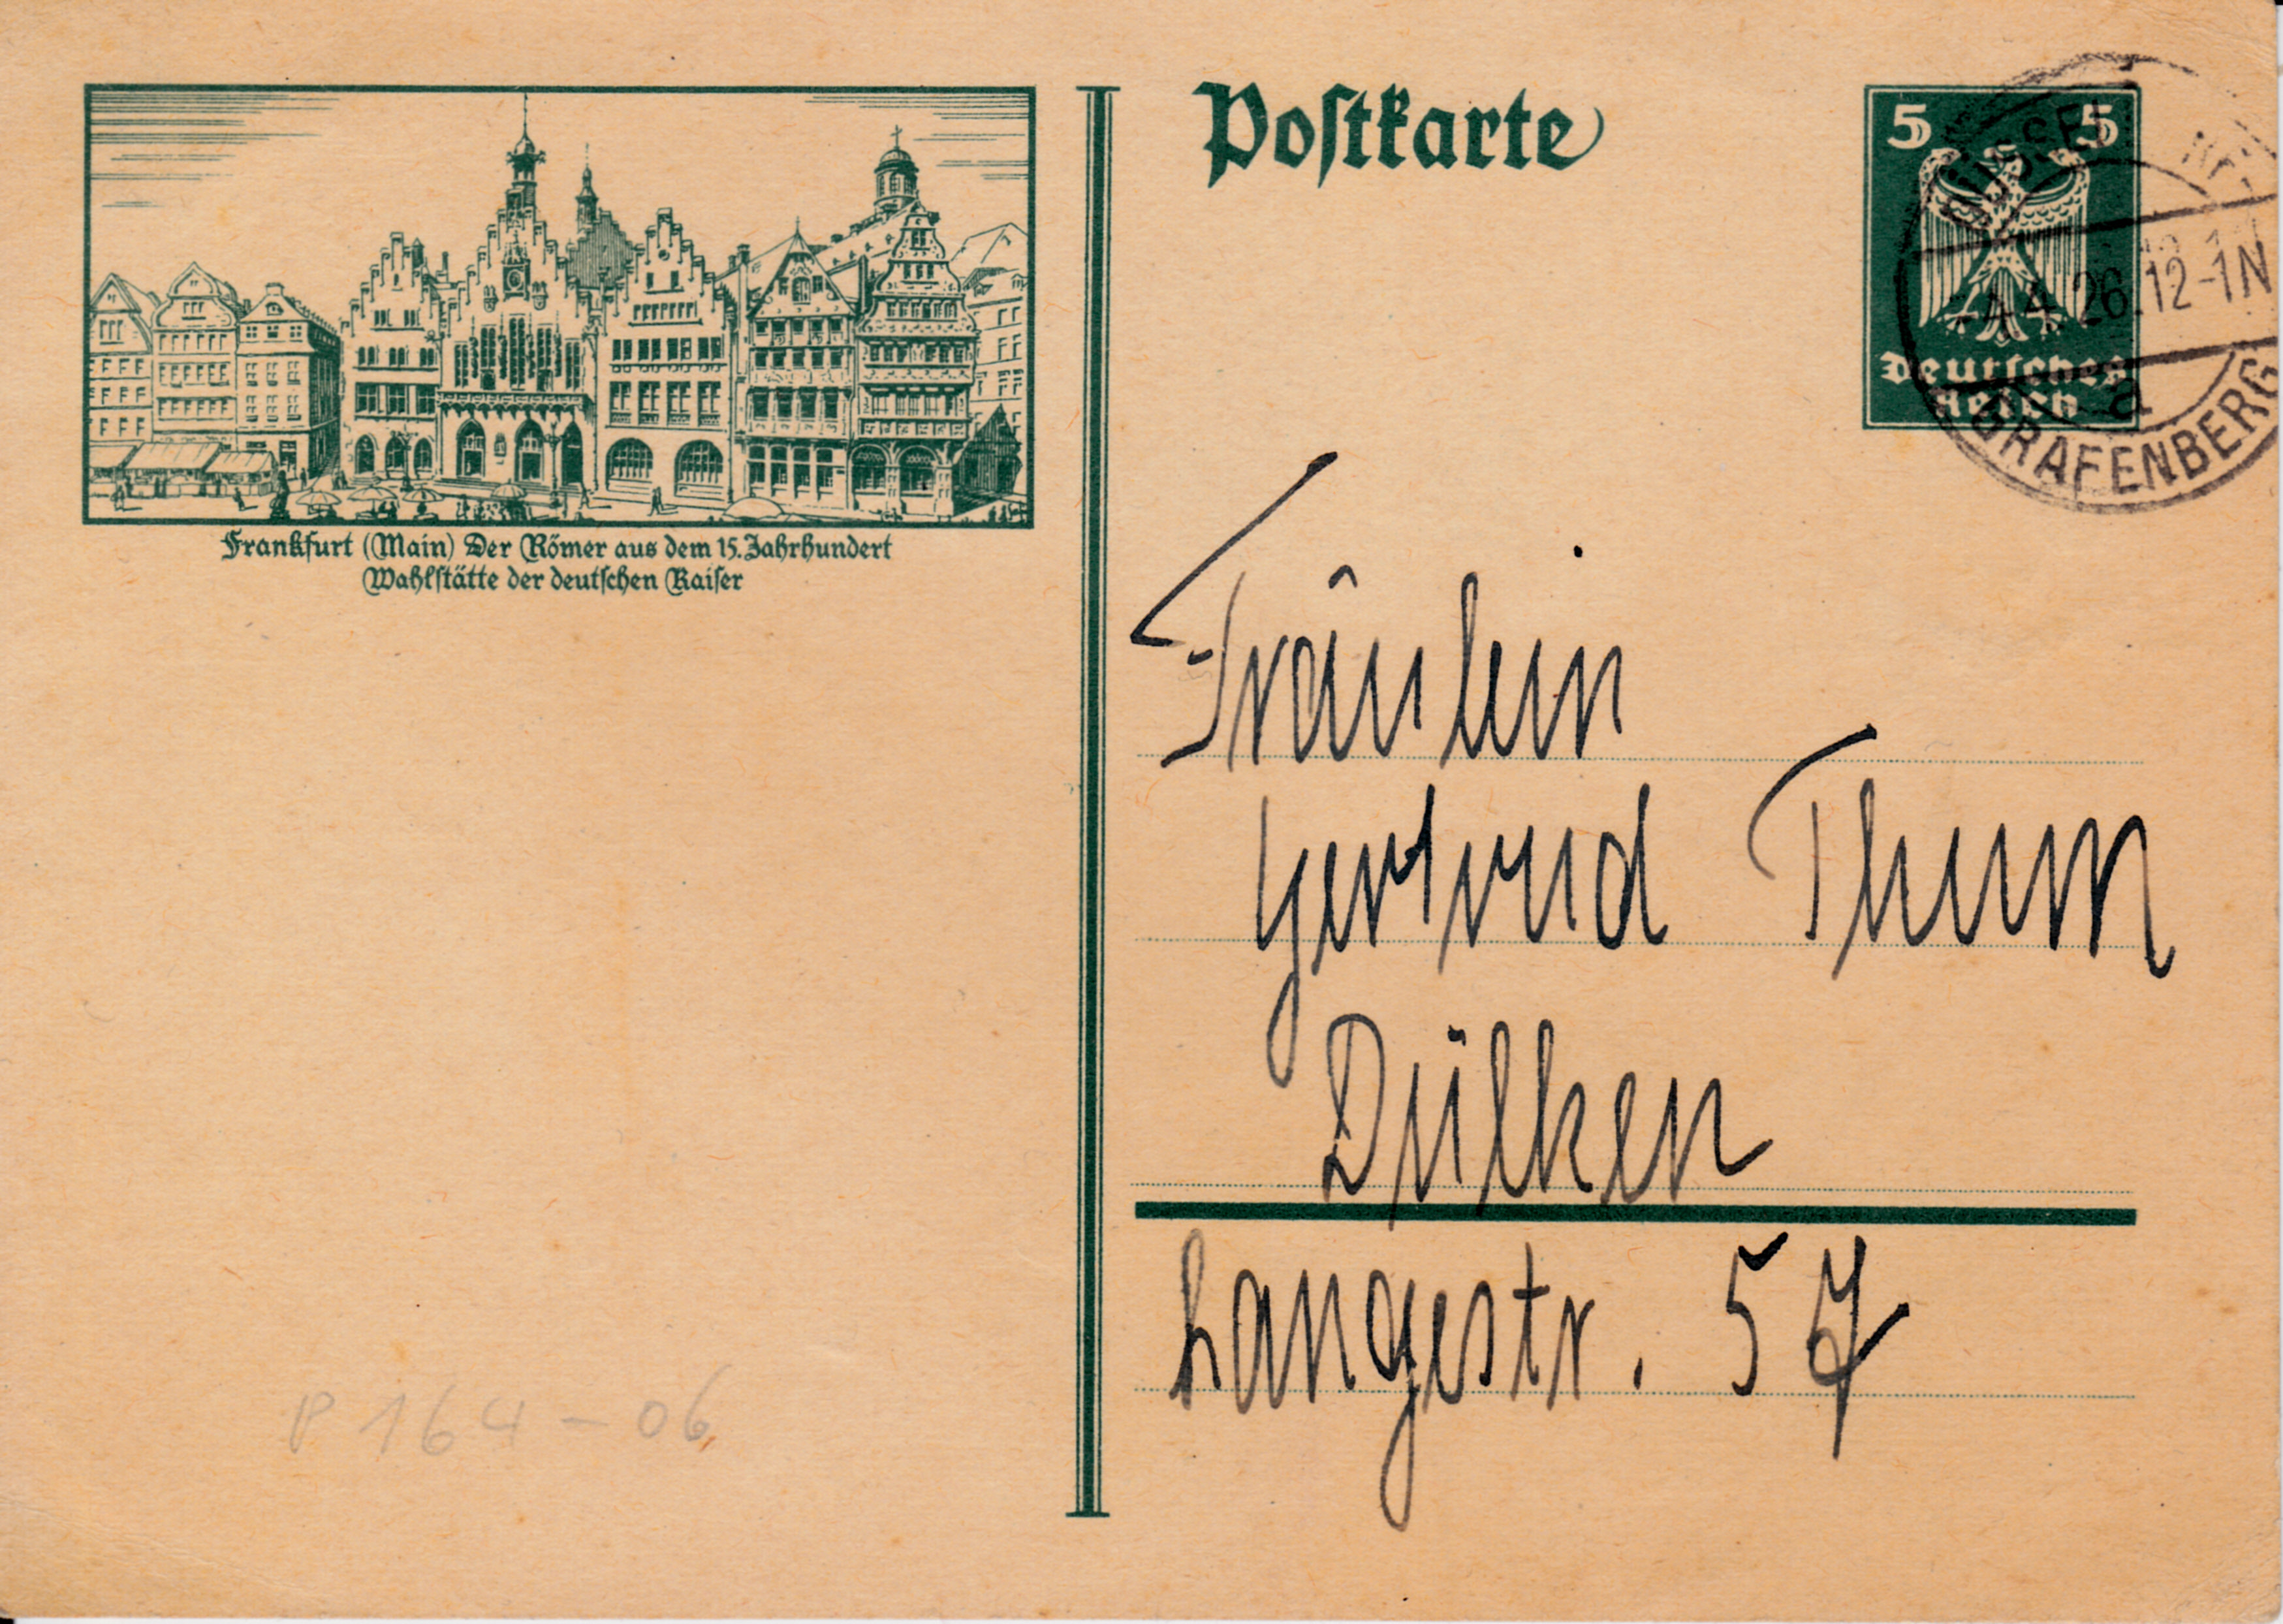 Poſtkarte
5 5
Deutſches
Reich
DÜSSEL
-4.4.26.12-1N
a
GRAFENBERG
Frankfurt (Main) Der Römer aus dem 15. Jahrhundert
Wahlſtätte der deutſchen Kaiſer
Fräulein
Gertrud Thum
Dülken
Langestr. 57
P 164-06